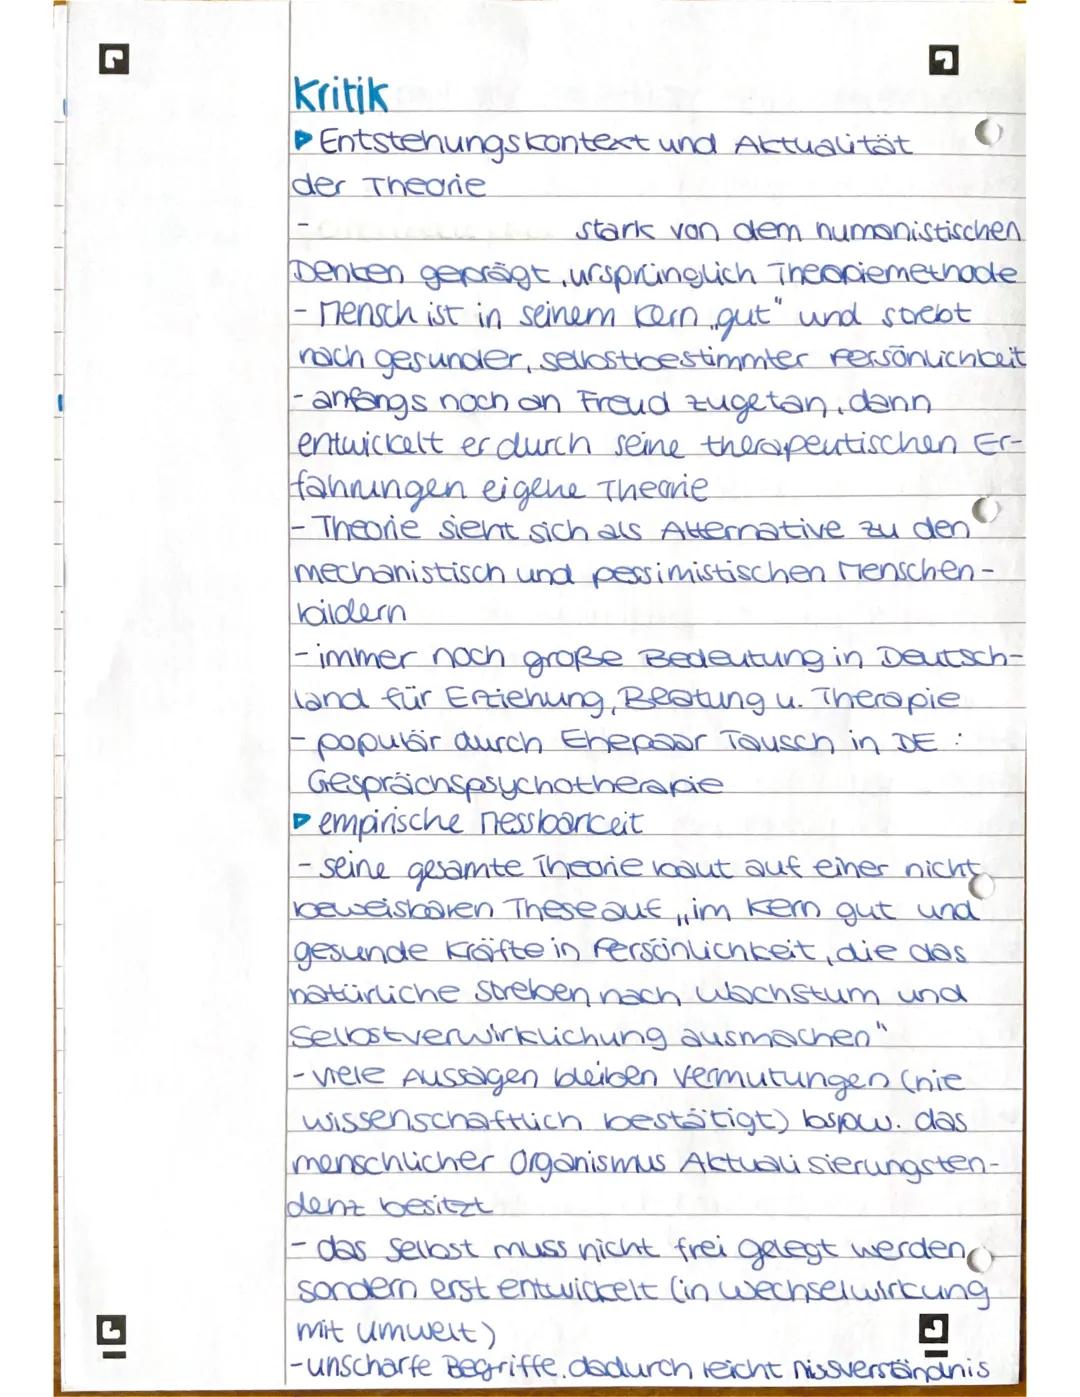 Kritik
▶ Entstehungskontext und Aktualität
der Theorie
- stark von dem humanistischen
Denken geprägt, ursprünglich Therapiemethode
- Mensch ist in seinem Kern „gut" und strebt
nach gesunder, selbstbestimmter Persönlichkeit
- anfangs noch an Freud zugetan, dann
entwickelt er durch seine therapeutischen Er-
fahrungen eigene Theorie
- Theorie sieht sich als Alternative zu den
mechanistisch und pessimistischen Menschen-
bildern
- immer noch große Bedeutung in Deutsch-
land für Erziehung, Beatung u. Therapie
- populär durch Ehepaar Tausch in DE :
Gesprächspsychotherapie
▶ empirische Messbarkeit
- seine gesamte Theorie baut auf einer nicht
beweisbaren These auf „im Kern gut und
gesunde Kräfte in Persönlichkeit, die das
natürliche Streben nach Wachstum und
Selbstverwirklichung ausmachen"
- viele Aussagen bleiben Vermutungen (nie
wissenschaftlich bestätigt) bspw. das
menschlicher Organismus Aktualisierungsten-
denz besitzt
- das Selbst muss nicht frei gelegt werden,
sondern erst entwickelt (in Wechselwirkung
mit Umwelt)
- unscharfe Begriffe, dadurch leicht Missverständnis